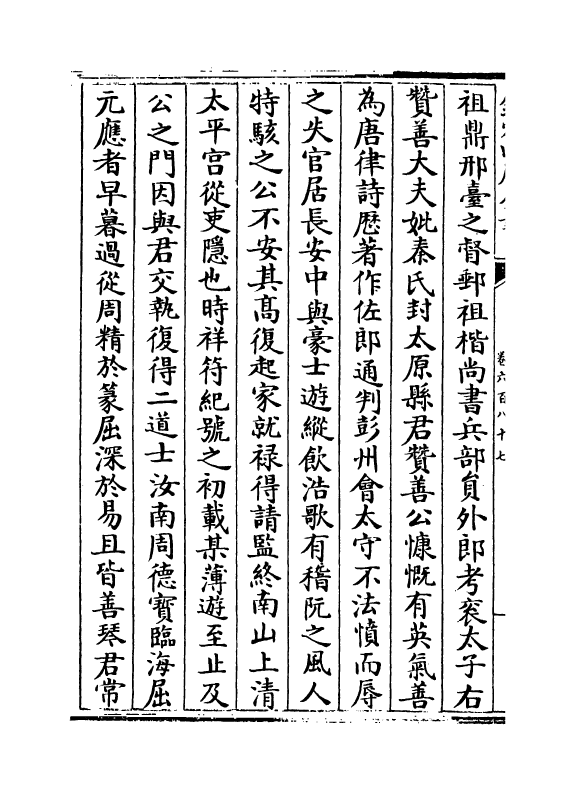 卷六百八十七
祖鼎邢臺之督郵祖楷尚書兵部負外郎考衮太子右
贊善大夫妣秦氏封太原縣君贊善公慷慨有英氣善
為唐律詩歴著作佐郎通判彭州會太守不法憤而辱
之失官居長安中與豪士遊縱飲浩歌有稽阮之風人
特駭之公不安其髙復起家就禄得請監終南山上清
太平宫從吏隱也時祥符紀號之初載某薄遊至止及
公之門因與君交執復得二道士汝南周德寳臨海屈
元應者早暮過從周精於篆屈深於易且皆善琴君常